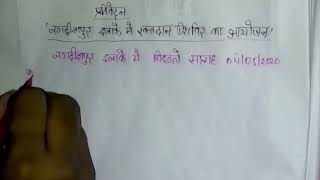 प्रतिवेदन
'जगदीशपुर इलाके में रक्तदान शिविर का आयोजन'
जगदीशपुर इलाके में पिछले सप्ताह 04/05/2020